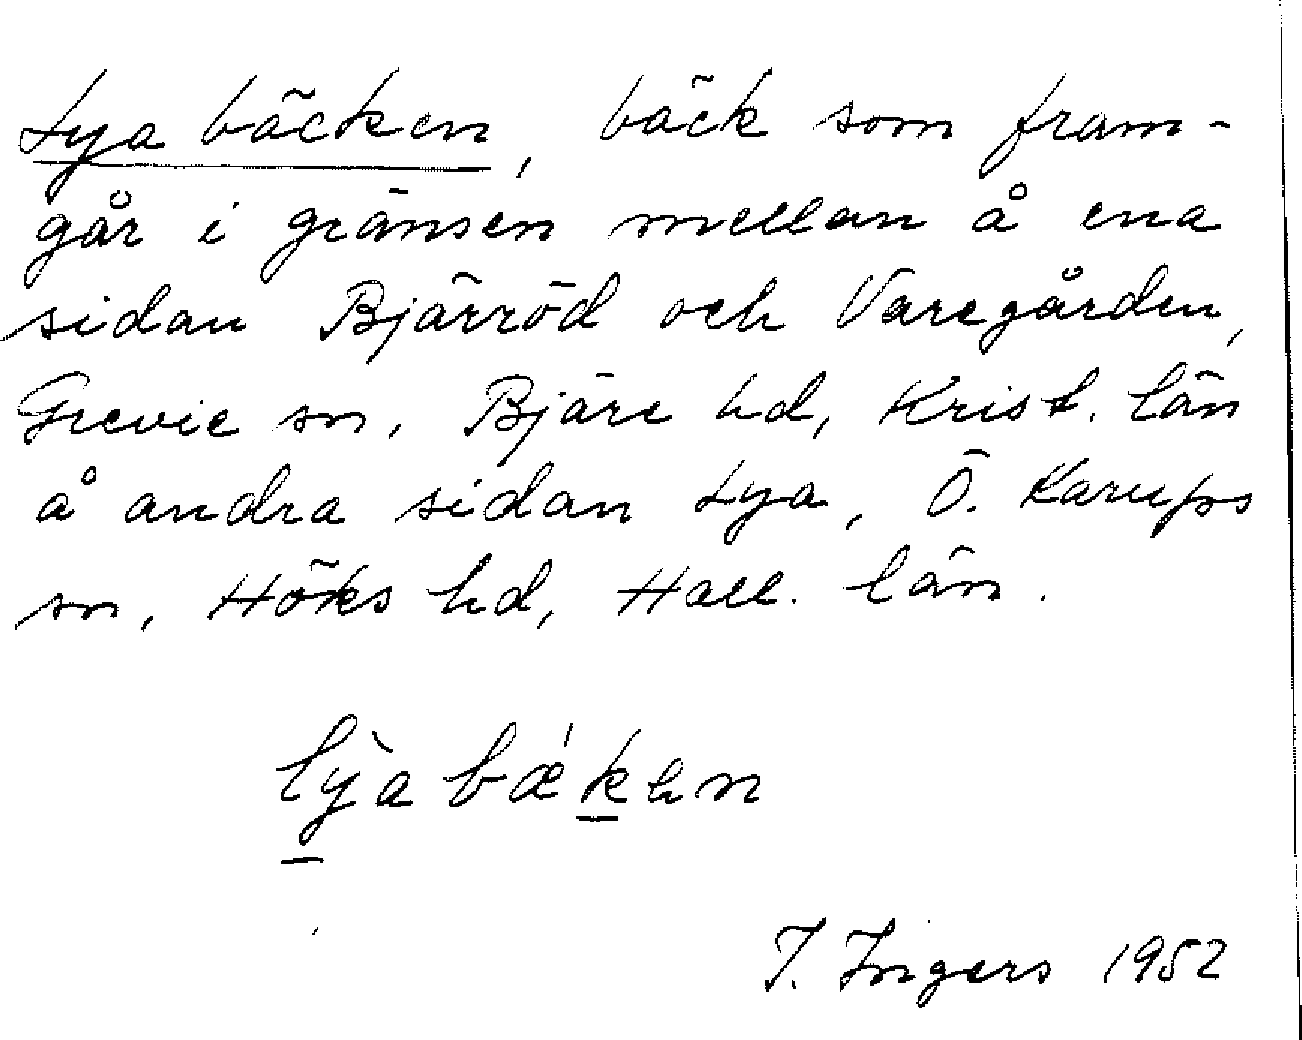 Lya bäcken, bäck som fram-
går i gränsen mellan å ena
sidan Bjärröd och Varegården,
Grevie sn, Bjäre hd, Krist. län
å andra sidan Lya, Ö. Karups
sn, Höks hd, Hall. län.
lỳa bǽken
I. Ingers 1952